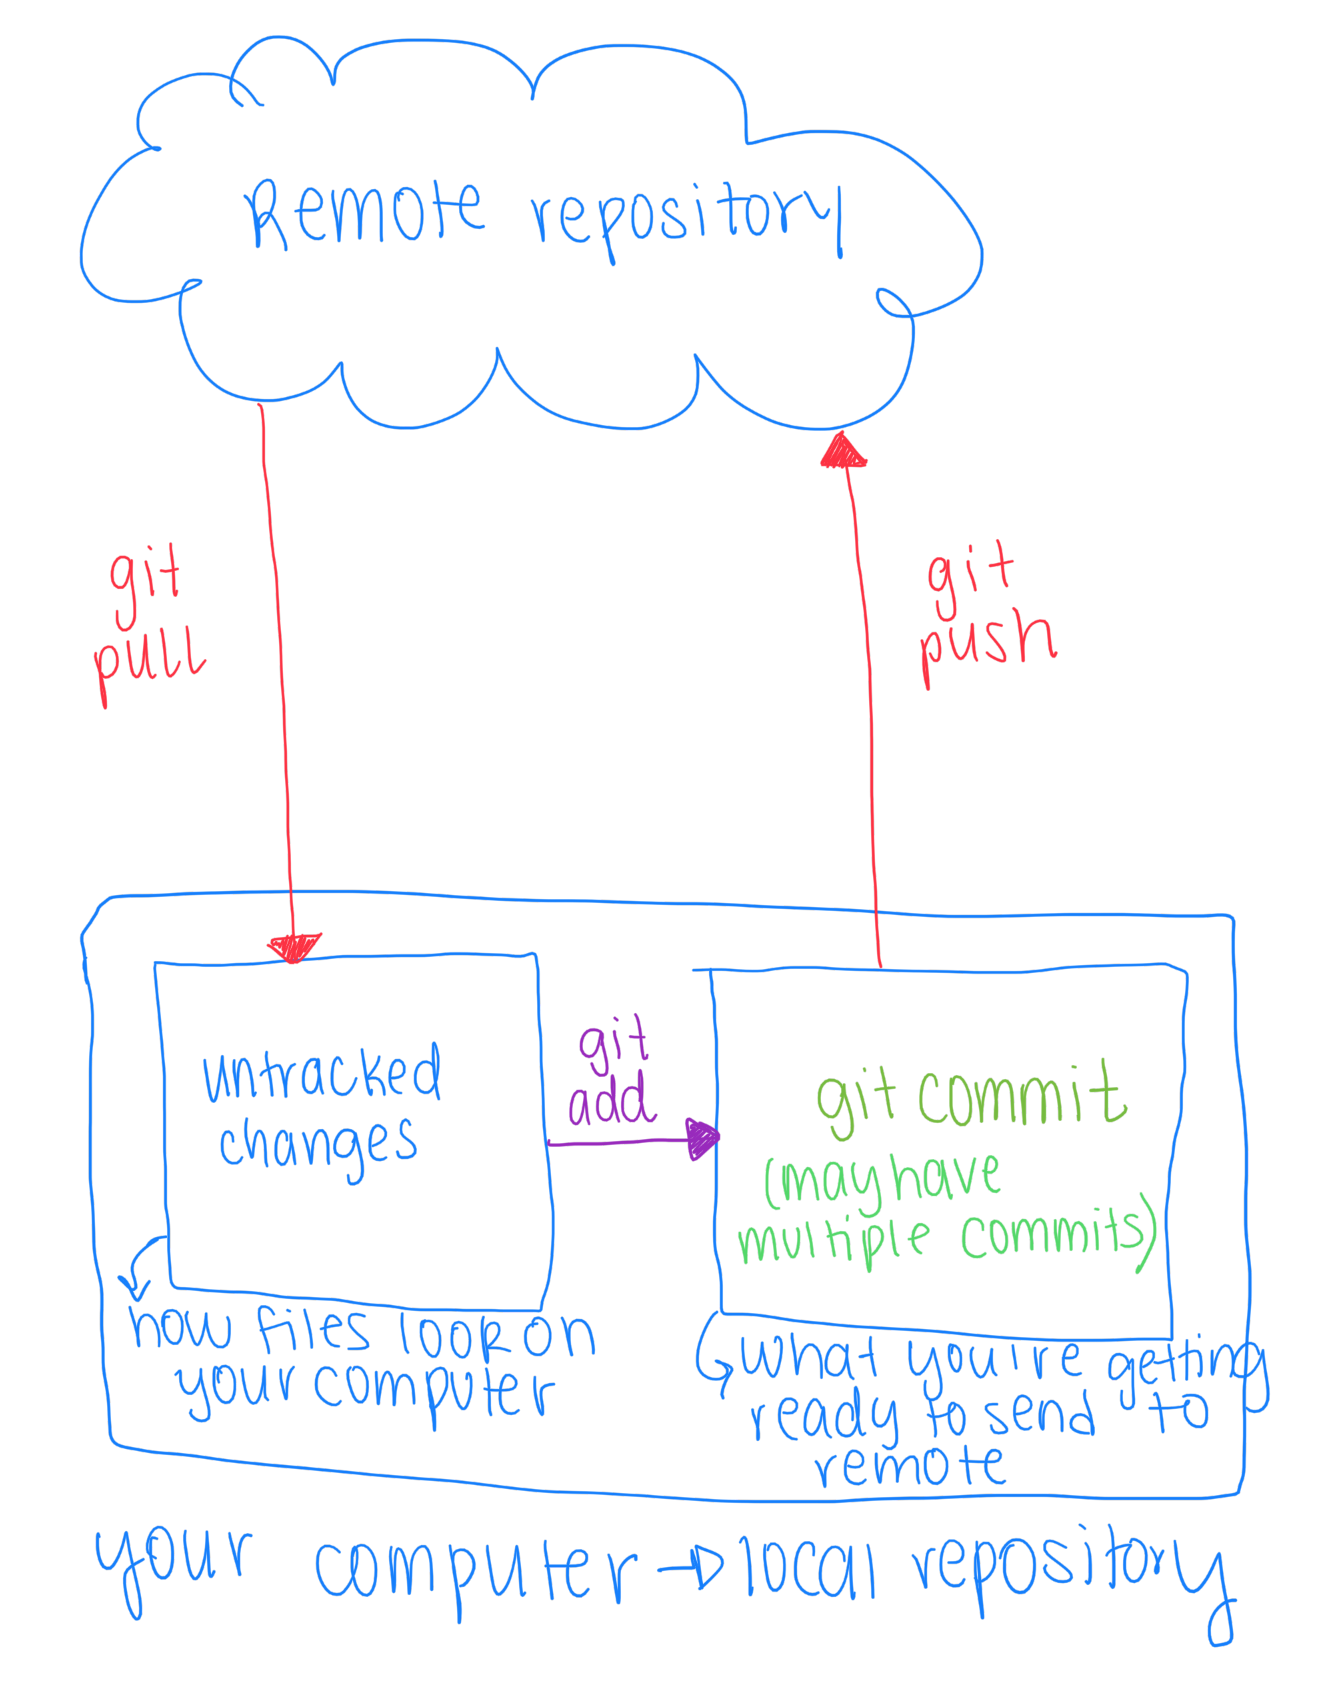 Remote repository
git
pull
git
push
untracked
changes
git
add
git commit
(may have
multiple commits)
how files look on
your computer
what you're getting
ready to send to
remote
your computer → local repository